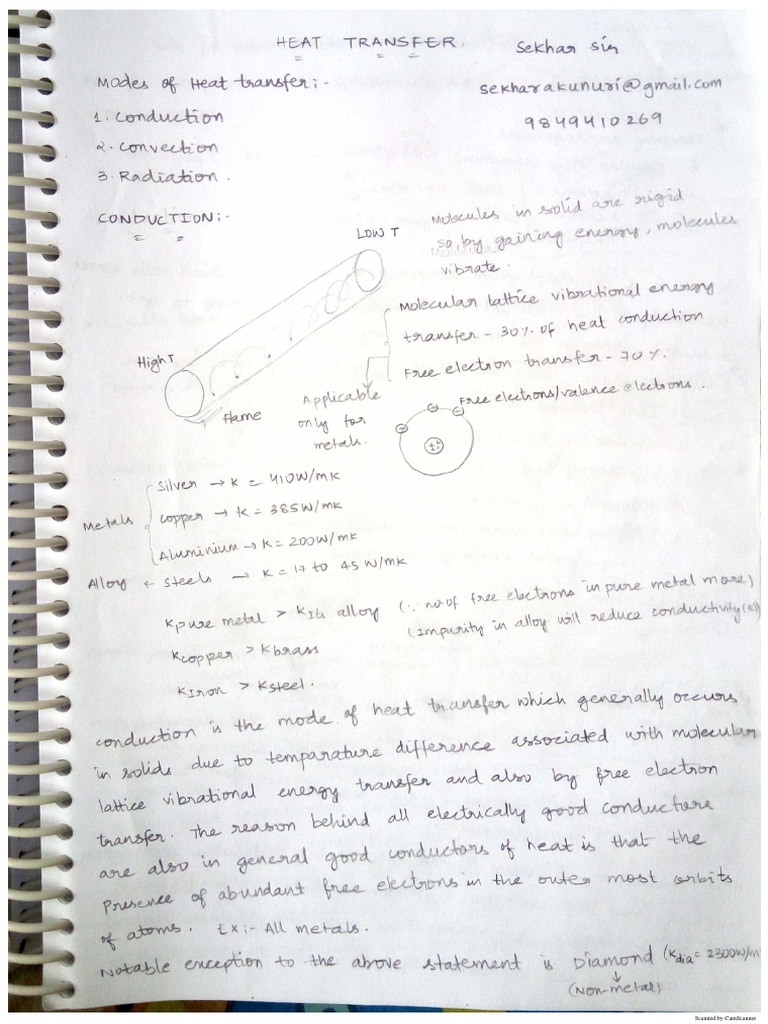 HEAT TRANSFER.
Sekhar sir
Modes of Heat transfer:-
sekharakunuri@gmail.com
1. Conduction
9849410269
2. Convection
3. Radiation.
CONDUCTION:-
Molecules in solid are rigid
so, by gaining energy, molecules
vibrate.
LOW T
High T
Flame
Molecular lattice vibrational energy
transfer - 30% of heat conduction
Free electron transfer - 70%.
Applicable
only for
metals.
Free electrons/valence electrons.
Metals
Silver → K = 410W/mK
Copper → K = 385W/mK
Aluminium → K = 200W/mK
Alloy ← Steels → K = 17 to 45 W/mK
K pure metal > K Its alloy (∵ no of free electrons in pure metal more)
(Impurity in alloy will reduce conductivity(K))
Kcopper > Kbrass
KIron > Ksteel.
Conduction is the mode of heat transfer which generally occurs
in solids due to temparature difference associated with molecular
lattice vibrational energy transfer and also by free electron
transfer. The reason behind all electrically good conductors
are also in general good conductors of heat is that the
presence of abundant free electrons in the outer most orbits
of atoms. Ex:- All metals.
Notable exception to the above statement is Diamond (Kdia = 2300W/m
(Non-metal)
Scanned by CamScanner